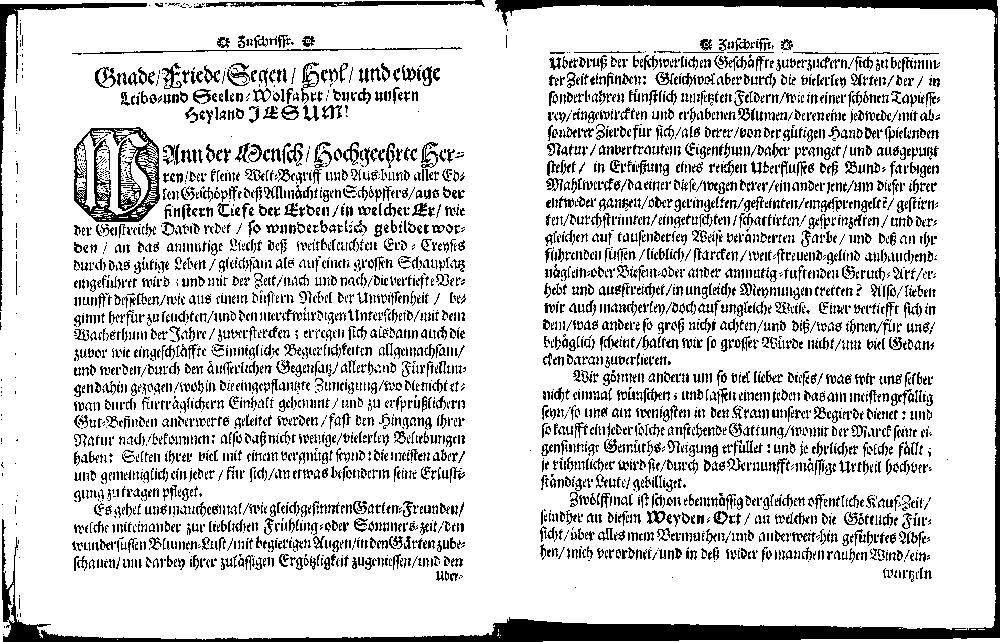 Zuschrifft.
Gnade/Friede/Segen/Heyl/und ewige
Leibs-und Seelen-Wolfahrt/durch unsern
Heyland JESUM!
WAnn der Mensch/Hochgeehrte Her-
ren/der kleine Welt-Begriff und Aus-bund aller Ed-
len Geschöpffe deß Allmächtigen Schöpffers/aus der
finstern Tiefe der Erden/in welcher Er/wie
der Geistreiche David redet/so wunderbarlich gebildet wor-
den/an das anmutige Liecht deß weitbeleuchten Erd-Creyses
durch das gütige Leben/gleichsam als auf einen grossen Schauplatz
eingeführet wird: und mit der Zeit/nach und nach/die vertiefte Ver-
nunfft desselben/wie aus einem düstern Nebel der Unwissenheit/be-
ginnt herfür zu leuchten/und den merckwürdigen Unterscheid/mit dem
Wachsthum der Jahre/zuverstercken: erregen sich alsdann auch die
zuvor wie eingeschläffte Sinnigliche Begierlichkeiten allgemachsam/
und werden/durch den äusserlichen Gegensatz/allerhand Fürstellun-
gen dahin gezogen/wohin die eingepflantzte Zuneigung/wo die nicht et-
wan durch fürträglichern Einhalt gehemmt/und zu ersprüßlichern
Gut-Befinden anderwerts geleitet werden/fast den Hingang ihrer
Natur nach/bekommen: also daß nicht wenige/vielerley Beliebungen
haben: Selten ihrer viel mit einem vergnügt seynd: die meisten aber/
und gemeiniglich ein jeder/für sich/an etwas besonderm seine Erlusti-
gung zu tragen pfleget.
Es gehet uns manchesmal/wie gleichgesinnten Garten-Freunden/
welche miteinander zur lieblichen Frühling-oder Sommers-zeit/den
wundersüssen Blumen-Lust/mit begierigen Augen/in den Gärten zube-
schauen/um darbey ihrer zulässigen Ergötzligkeit zugeniessen/und den
Uber-
Zuschrifft.
Uberdruß der beschwerlichen Geschäffte zuverzuckern/sich zu bestimm-
ter Zeit einfinden: Gleichwol aber durch die vielerley Arten/der/in
sonderbahren künstlich umsetzten Feldern/wie in einer schönen Tapisse-
rey/eingewirckten und erhabenen Blumen/deren eine jedwede/mit ab-
sonderer Zierde für sich/als derer/von der gütigen Hand der spielenden
Natur/anvertrautem Eigenthum/daher pranget/und ausgeputzt
stehet/in Erkiessung eines reichen Uberflusses deß Bund-farbigen
Mahlwercks/da einer diese/wegen derer/ein ander jene/um dieser ihrer
entweder gantzen/oder geringelten/gesteinten/eingesprengelt?/gestirn-
ten/durchstrimten/eingetuschten/schattirten/gesprinzelten/und der-
gleichen auf tausenderley Weise veränderten Farbe/und deß an ihr
führenden süssen/lieblich/starcken/weit-streuend-gelind anhauchend-
näglein-oder Biesem-oder ander anmutig-tuftenden Geruch-Art/er-
hebt und ausstreichet/in ungleiche Meynungen tretten? Also/lieben
wir auch mancherley/doch auf ungleiche Weise. Einer vertiefft sich in
dem/was andere so groß nicht achten/und diß/was ihnen/für uns/
behäglich scheint/halten wir so grosser Würde nicht/um viel Gedan-
cken daran zuverlieren.
Wir gönnen andern um so viel lieber dieses/was wir uns selber
nicht einmal wünschen; und lassen einem jeden das am meisten gefällig
seyn/so uns am wenigsten in den Kram unserer Begierde dienet: und
so kaufft ein jeder solche anstehende Gattung/womit der Marck seine ei-
gensinnige Gemüths-Neigung erfüllet: und je ehrlicher solche fällt;
je rühmlicher wird sie/durch das Vernunfft-mässige Urtheil hochver-
ständiger Leute/gebilliget.
Zwölffmal ist schon ebenmässig dergleichen offentliche Kauf-Zeit/
seindher an diesem Weyden-Ort/an welchen die Göttliche Für-
sicht/über alles mein Vermuthen/und anderweit-hin geführtes Abse-
hen/mich verordnet/und in deß wider so manchen rauhen Wind/ein-
wurtzeln